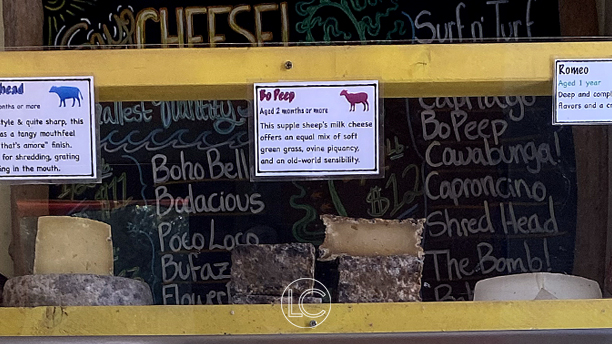 CHEESE!
Surf n' Turf
head
months or more
tyle & quite sharp, this
as a tangy mouthfeel
"that's amore" finish.
for shredding, grating
ing in the mouth.
Bo Peep
Aged 2 months or more
This supple sheep's milk cheese
offers an equal mix of soft
green grass, ovine piquancy,
and an old-world sensibility.
Romeo
Aged 1 year
Deep and compl
flavors and a c
Boho Bell
Bodacious
Poco Loco
Bufaz
Flower
Bo Peep
Cawabunga!
Caproncino
Shred Head
The Bomb!
LC